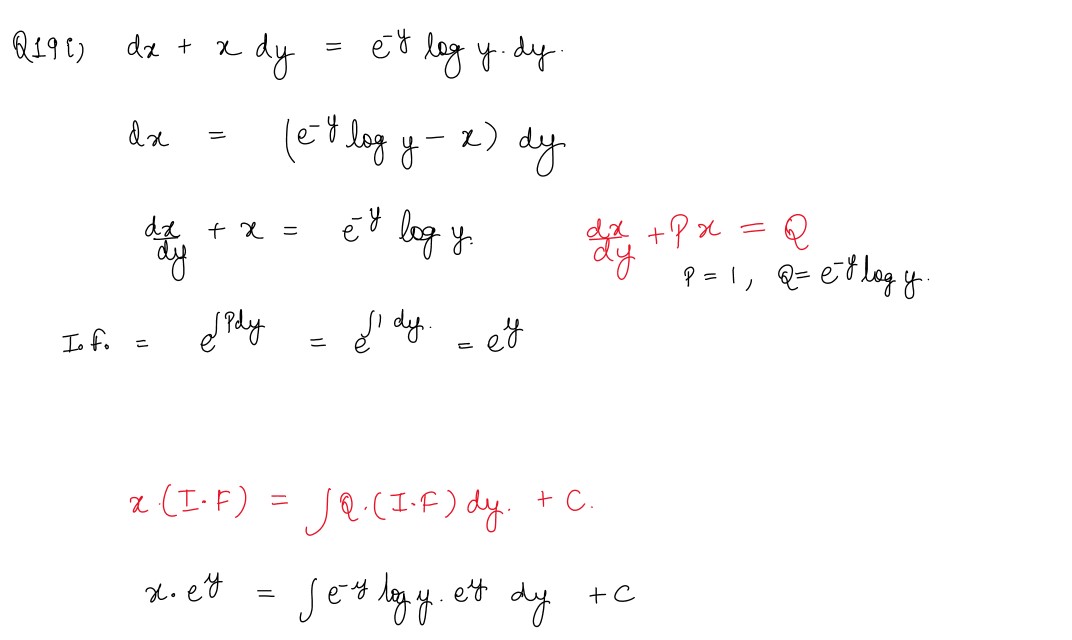 Q19i) dx + x dy = e^-y log y. dy.
dx = (e^-y log y - x) dy
dx/dy + x = e^-y log y. dx/dy + Px = Q
P = 1, Q = e^-y log y.
I.f. = e^∫Pdy = e^∫1 dy. = e^y
x.(I.F) = ∫Q.(I.F) dy. + C.
x. e^y = ∫e^-y log y. e^y dy + C